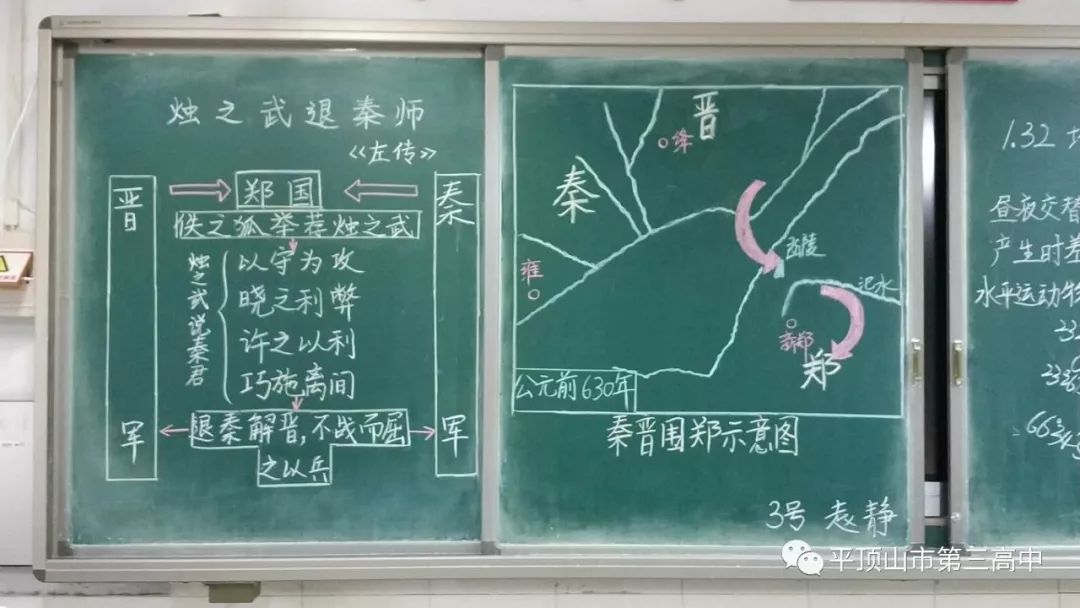 烛之武退秦师
《左传》
晋军
郑国
秦军
佚之狐举荐烛之武
烛之武说秦君
以守为攻
晓之利弊
许之以利
巧施离间
退秦解晋,不战而屈
之以兵
晋
绛
秦
雍
函陵
汜水
新郑
郑
公元前630年
秦晋围郑示意图
3号 袁静
1.32
昼夜交替
产生时差
水平运动
平顶山市第三高中